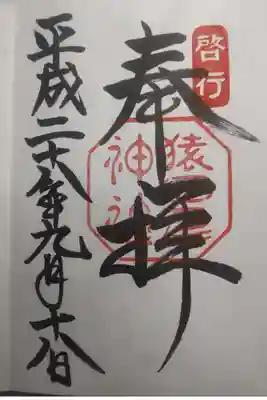 啓行
奉拝
猿田彦
神社
平成二十八年九月十八日